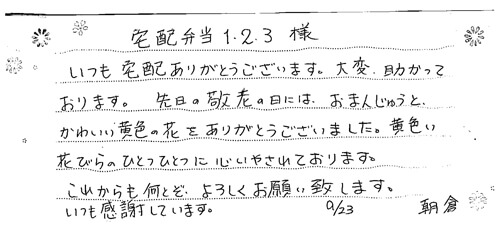 宅配弁当1・2・3 様
いつも宅配ありがとうございます。大変、助かって
おります。 先日の敬老の日には、おまんじゅうと、
かわいい黄色の花をありがとうございました。黄色い
花びらのひとつひとつに心いやされております。
これからも何とぞ、よろしくお願い致します。
いつも感謝しています。 9/23 朝倉